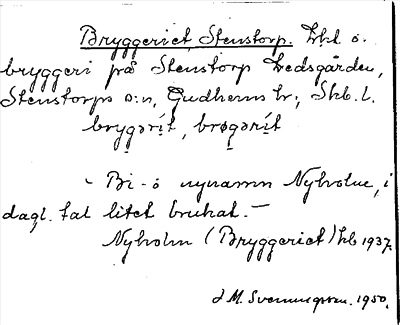 Bryggeriet, Stenstorp. Lht o.
bryggeri på Stenstorp Ledsgården,
Stenstorps s:n, Gudhems hr, Skb. l.
brygərít, brøgərít
- Bi- o nynamn Nyholm, i
dagl. tal litet brukat. -
Nyholm (Bryggeriet) hb 1937.
J M. 1950.